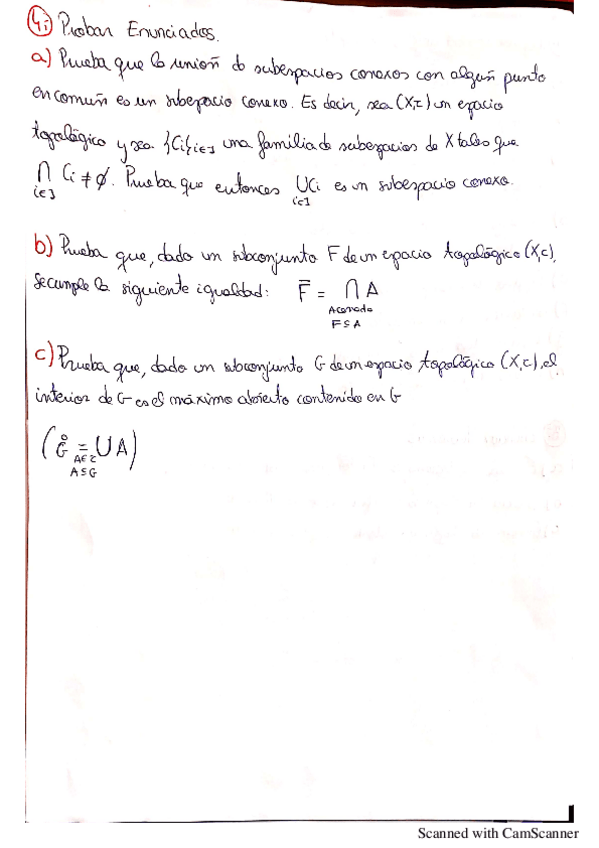 4) Probar Enunciados.
a) Prueba que la unión de subespacios conexos con algún punto
en común es un subespacio conexo. Es decir, sea (X,τ) un espacio
topológico y sea {Ci}i∈J una familia de subespacios de X tales que
⋂ Ci ≠ ∅. Prueba que entonces ⋃Ci es un subespacio conexo.
i∈J i∈J
b) Prueba que, dado un subconjunto F de un espacio topológico (X,τ),
se cumple la siguiente igualdad: F̄ = ⋂ A
A cerrado
F⊆A
c) Prueba que, dado un subconjunto G de un espacio topológico (X,τ), el
interior de G es el máximo abierto contenido en G
(G̊ = ⋃ A)
A∈τ
A⊆G
Scanned with CamScanner